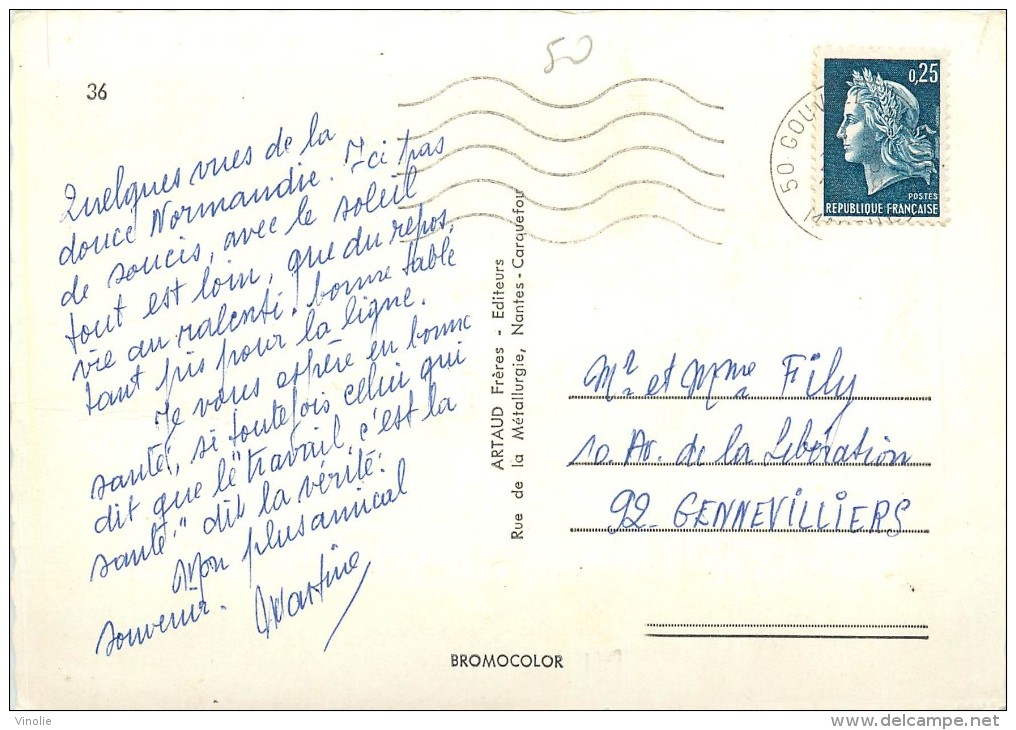 50
36
0,25
POSTES
REPUBLIQUE FRANÇAISE
50 - GOUV
Quelques vues de la
douce Normandie. Ici pas
de soucis, avec le soleil
tout est loin, que du repos,
vie au ralenti. bonne table
tant pis pour la ligne.
Je vous espère en bonne
santé, si toutefois celui qui
dit que le "travail, c'est la
santé" dit la vérité.
Mon plus amical
souvenir. Martine
ARTAUD Frères - Editeurs
Rue de la Métallurgie, Nantes - Carquefou
Mr et Mme Fily
10 Av. de la Libération
92 - GENNEVILLIERS
BROMOCOLOR
Vinolie
www.delcampe.net